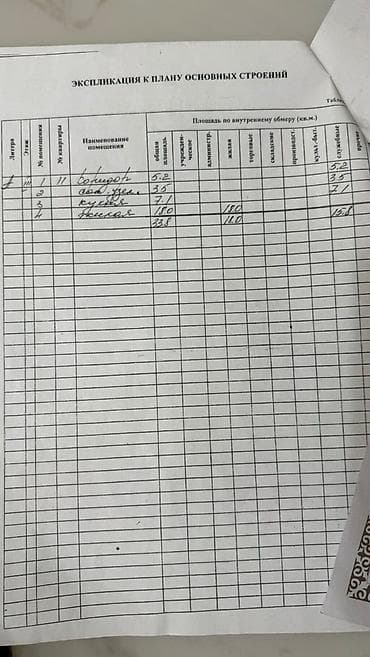 ЭКСПЛИКАЦИЯ К ПЛАНУ ОСНОВНЫХ СТРОЕНИЙ
Литера
Этаж
№ помещения
№ квартиры
Наименование помещения
Площадь по внутреннему обмеру (кв.м.)
общая площадь
учрежден-ческое
администр.
жилая
торговые
складские
производст.
культ.-быт.
служебные
прочие
1 11 5.2 5.2
2 3.5 3.5
3 кухня 7.1 7.1
4 жилая 18.0 18.0
33.8 18.0 15.8